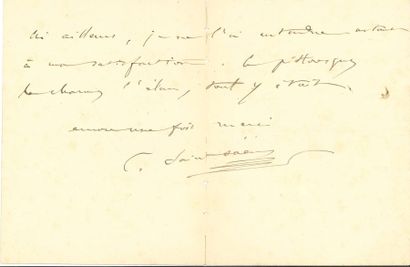 ni ailleurs, je ne l'ai entendue autant
à ma satisfaction. Le pittoresque
le charme l'élan, tout y était.
encore une fois merci
C. Saint-Saëns